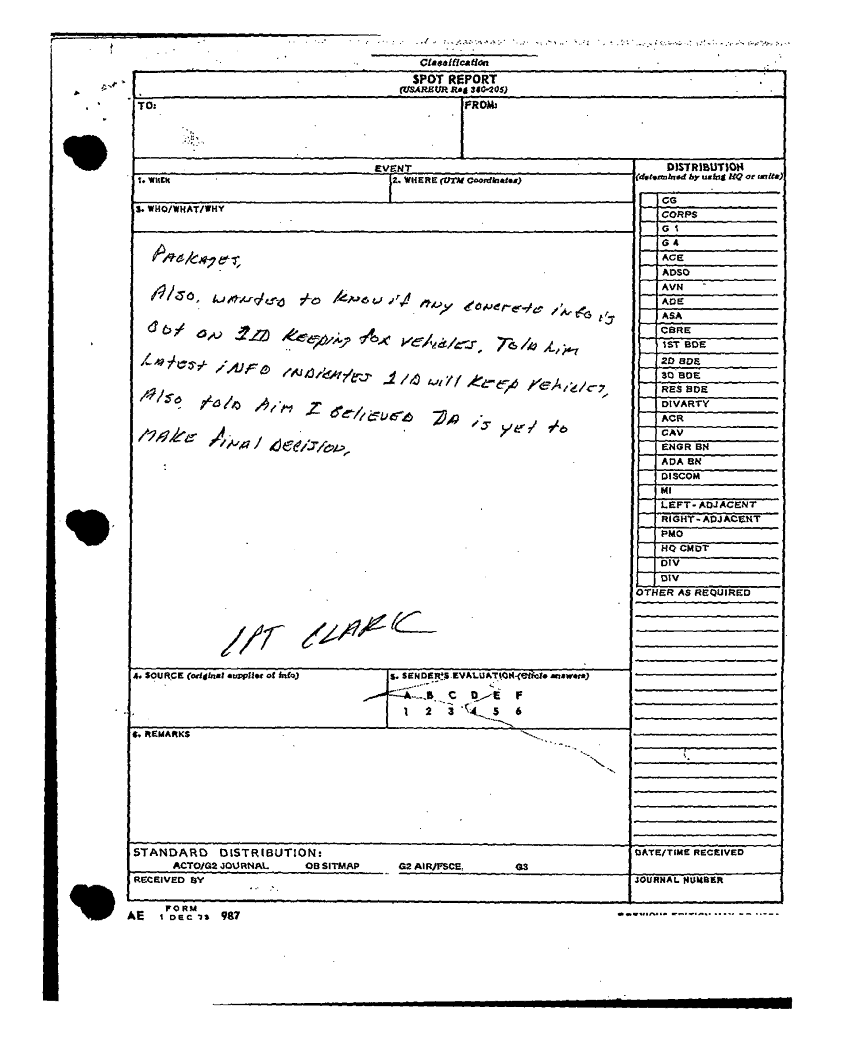 Classification
SPOT REPORT
(USAREUR Reg 380-205)
TO:
FROM:
EVENT
1. WHEN
2. WHERE (UTM Coordinates)
3. WHO/WHAT/WHY
Packages,
Also, wanted to know if any concrete info is
out on 1ID keeping for vehicles. Told him
Latest info indicates 1ID will keep vehicles,
Also told him I believed DA is yet to
make final decision.
CPT CLARK
4. SOURCE (original supplier of info)
5. SENDER'S EVALUATION (Circle answers)
A B C D E F
1 2 3 4 5 6
6. REMARKS
STANDARD DISTRIBUTION:
ACTO/G2 JOURNAL OB SITMAP G2 AIR/FSCE, G3
RECEIVED BY
DISTRIBUTION
(determined by using HQ or units)
CG
CORPS
G 1
G 4
ACE
ADSO
AVN
ADE
ASA
CBRE
1ST BDE
2D BDE
3D BDE
RES BDE
DIVARTY
ACR
CAV
ENGR BN
ADA BN
DISCOM
MI
LEFT-ADJACENT
RIGHT-ADJACENT
PMO
HQ CMDT
DIV
DIV
OTHER AS REQUIRED
DATE/TIME RECEIVED
JOURNAL NUMBER
AE FORM 1 DEC 73 987